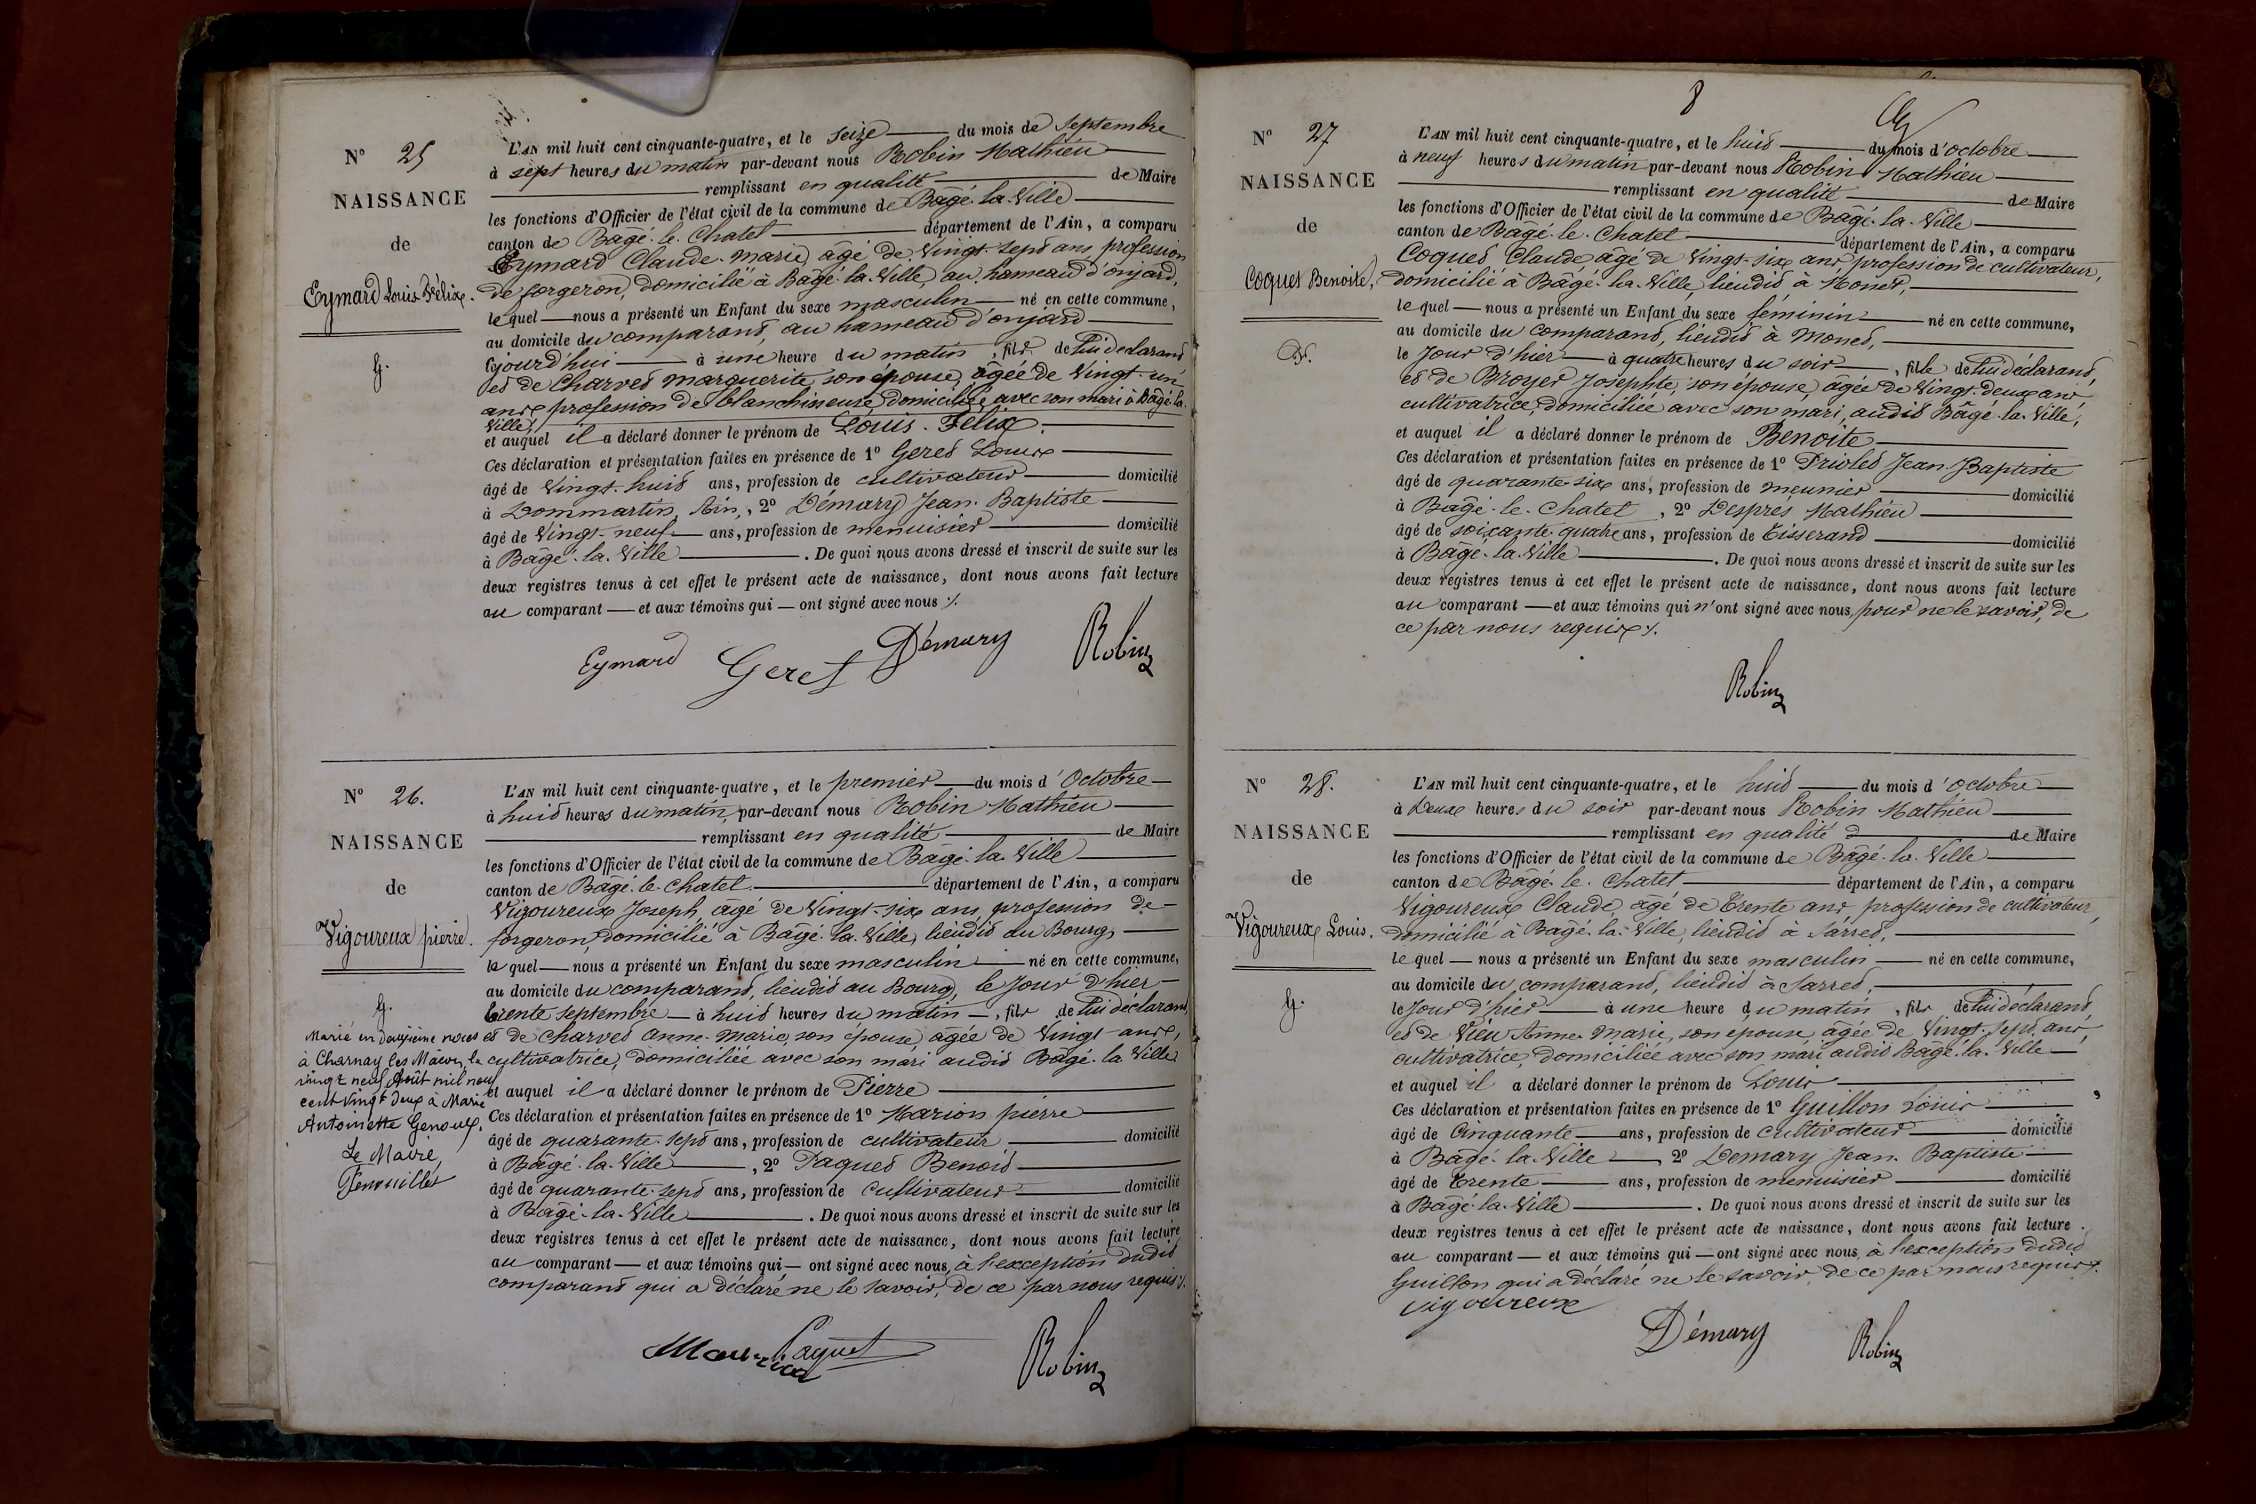 N° 25
NAISSANCE
de
Eymard Louis Félix.
g.
L'AN mil huit cent cinquante-quatre, et le seize du mois de Septembre
à sept heures du matin par-devant nous Robin Mathieu
remplissant en qualité de Maire
les fonctions d'Officier de l'état civil de la commune de Bâgé-la-Ville
canton de Bâgé-le-Chatel département de l'Ain, a comparu
Eymard Claude-Marie, âgé de Vingt-sept ans, profession
de forgeron, domicilié à Bâgé-la-Ville, au hameau d'onjard,
lequel nous a présenté un Enfant du sexe masculin né en cette commune,
au domicile du comparant, au hameau d'onjard
cejourd'hui à une heure du matin, fils de lui déclarant
et de Charvet Marguerite, son épouse, âgée de Vingt-un
ans, profession de blanchisseuse, domiciliée avec son mari à Bâgé-la-
Ville,
et auquel il a déclaré donner le prénom de Louis-Félix.
Ces déclaration et présentation faites en présence de 1° Geret Louis
âgé de Vingt-huit ans, profession de cultivateur domicilié
à Dommartin, Ain, 2° Démary Jean-Baptiste
âgé de Vingt-neuf ans, profession de menuisier domicilié
à Bâgé-la-Ville. De quoi nous avons dressé et inscrit de suite sur les
deux registres tenus à cet effet le présent acte de naissance, dont nous avons fait lecture
au comparant et aux témoins qui ont signé avec nous ./.
Eymard Geret Démary Robin
N° 26.
NAISSANCE
de
Vigoureux pierre.
g.
Marié en deuxième noces
à Charnay les Mâcon, le
vingt neuf Août mil neuf
cent vingt deux à Marie
Antoinette Genoux.
Le Maire,
L'AN mil huit cent cinquante-quatre, et le premier du mois d'Octobre
à huit heures du matin, par-devant nous Robin Mathieu
remplissant en qualité de Maire
les fonctions d'Officier de l'état civil de la commune de Bâgé-la-Ville
canton de Bâgé-le-Chatel département de l'Ain, a comparu
Vigoureux Joseph, âgé de Vingt-six ans, profession de
forgeron, domicilié à Bâgé-la-Ville, lieudit au Bourg,
lequel nous a présenté un Enfant du sexe masculin né en cette commune,
au domicile du comparant, lieudit au Bourg, le Jour d'hier
trente septembre à huit heures du matin, fils de lui déclarant
et de Charvet Anne-Marie, son épouse, âgée de Vingt ans,
cultivatrice, domiciliée avec son mari audit Bâgé-la-Ville
et auquel il a déclaré donner le prénom de Pierre
Ces déclaration et présentation faites en présence de 1° Marion pierre
âgé de quarante-sept ans, profession de cultivateur domicilié
à Bâgé-la-Ville, 2° Paquet Benoit
âgé de quarante-sept ans, profession de cultivateur domicilié
à Bâgé-la-Ville. De quoi nous avons dressé et inscrit de suite sur les
deux registres tenus à cet effet le présent acte de naissance, dont nous avons fait lecture
au comparant et aux témoins qui ont signé avec nous, à l'exception dudit
comparant qui a déclaré ne le savoir, de ce par nous requis ./.
Paquet Robin
8
N° 27
NAISSANCE
de
Coquet Benoite,
L'AN mil huit cent cinquante-quatre, et le huit du mois d'octobre
à neuf heures du matin par-devant nous Robin Mathieu
remplissant en qualité de Maire
les fonctions d'Officier de l'état civil de la commune de Bâgé-la-Ville
canton de Bâgé-le-Chatel département de l'Ain, a comparu
Coquet Claude âgé de Vingt-six ans, profession de cultivateur,
domicilié à Bâgé-la-Ville, lieudit à Monet,
lequel nous a présenté un Enfant du sexe féminin né en cette commune,
au domicile du comparant, lieudit à Monet,
le Jour d'hier à quatre heures du soir, fille de lui déclarant,
et de Broyer Josephte, son épouse, âgée de Vingt-deux ans,
cultivatrice, domiciliée avec son mari, audit Bâgé-la-Ville,
et auquel il a déclaré donner le prénom de Benoite
Ces déclaration et présentation faites en présence de 1° Priolet Jean-Baptiste
âgé de quarante-six ans, profession de meunier domicilié
à Bâgé-le-Chatel, 2° Desprès Mathieu
âgé de soixante-quatre ans, profession de tisserand domicilié
à Bâgé-la-Ville. De quoi nous avons dressé et inscrit de suite sur les
deux registres tenus à cet effet le présent acte de naissance, dont nous avons fait lecture
au comparant et aux témoins qui n'ont signé avec nous, pour ne le savoir, de
ce par nous requis ./.
Robin
N° 28.
NAISSANCE
de
Vigoureux Louis.
g.
L'AN mil huit cent cinquante-quatre, et le huit du mois d'Octobre
à Deux heures du soir par-devant nous Robin Mathieu
remplissant en qualité de Maire
les fonctions d'Officier de l'état civil de la commune de Bâgé-la-Ville
canton de Bâgé-le-Chatel département de l'Ain, a comparu
Vigoureux Claude, âgé de trente ans, profession de cultivateur,
domicilié à Bagé-la-Ville, lieudit à Sarret,
lequel nous a présenté un Enfant du sexe masculin né en cette commune,
au domicile du comparant, lieudit à Sarret,
le Jour d'hier à une heure du matin, fils de lui déclarant,
et de Vieu Anne-Marie, son épouse, âgée de Vingt-sept ans,
cultivatrice, domiciliée avec son mari audit Bâgé-la-Ville
et auquel il a déclaré donner le prénom de Louis
Ces déclaration et présentation faites en présence de 1° Guillon Louis
âgé de Cinquante ans, profession de cultivateur domicilié
à Bâgé-la-Ville, 2° Demary Jean-Baptiste
âgé de trente ans, profession de menuisier domicilié
à Bâgé-la-Ville. De quoi nous avons dressé et inscrit de suite sur les
deux registres tenus à cet effet le présent acte de naissance, dont nous avons fait lecture
au comparant et aux témoins qui ont signé avec nous, à l'exception dudit
Guillon qui a déclaré ne le savoir, de ce par nous requis ./.
Vigoureux Démary Robin